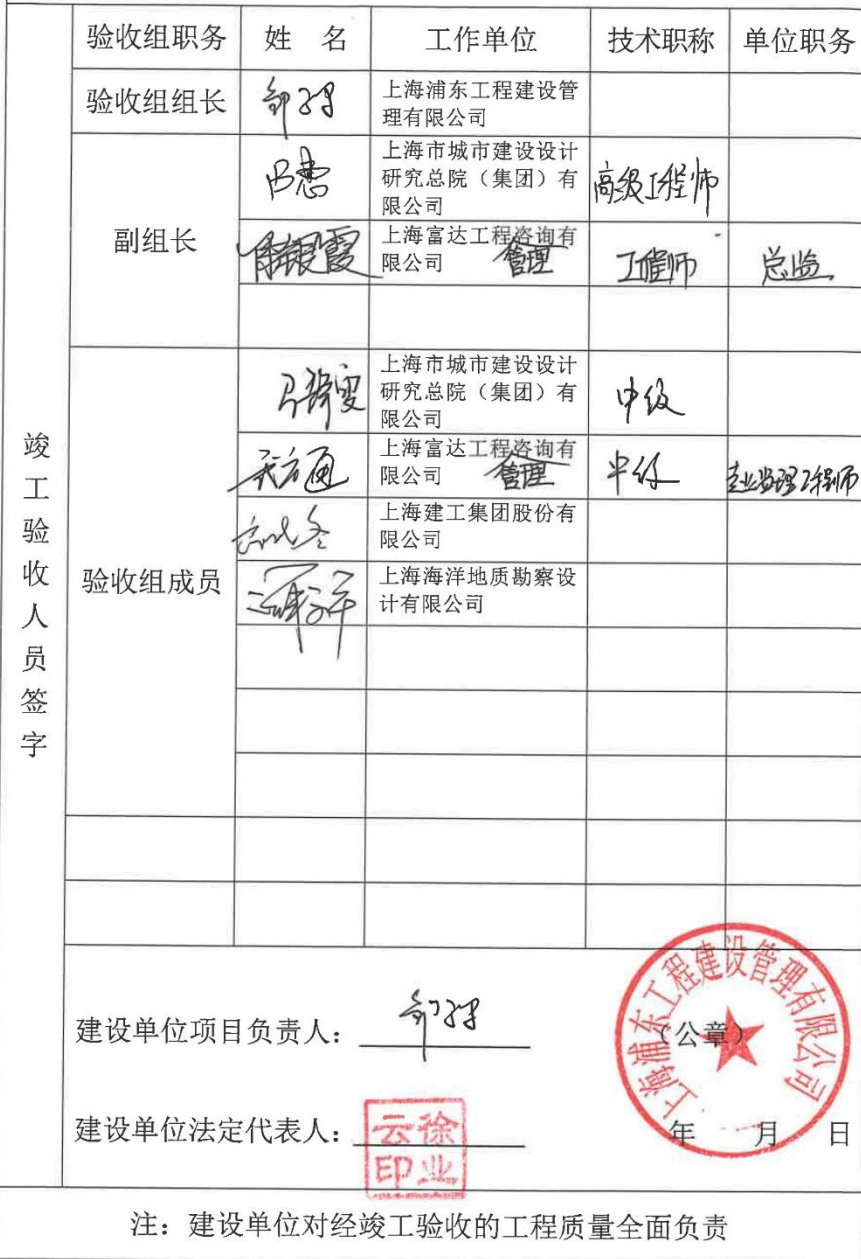 验收组职务 姓 名 工作单位 技术职称 单位职务
验收组组长 上海浦东工程建设管
理有限公司
副组长
上海市城市建设设计
研究总院（集团）有
限公司
高级工程师
上海富达工程咨询有
限公司 管理 工程师 总监
验收组成员
上海市城市建设设计
研究总院（集团）有
限公司
中级
上海富达工程咨询有
限公司 管理 中级 专业监理工程师
上海建工集团股份有
限公司
上海海洋地质勘察设
计有限公司
竣工验收人员签字
建设单位项目负责人：
（公章）
上海浦东工程建设管理有限公司
建设单位法定代表人：
徐业云印
年 月 日
注：建设单位对经竣工验收的工程质量全面负责